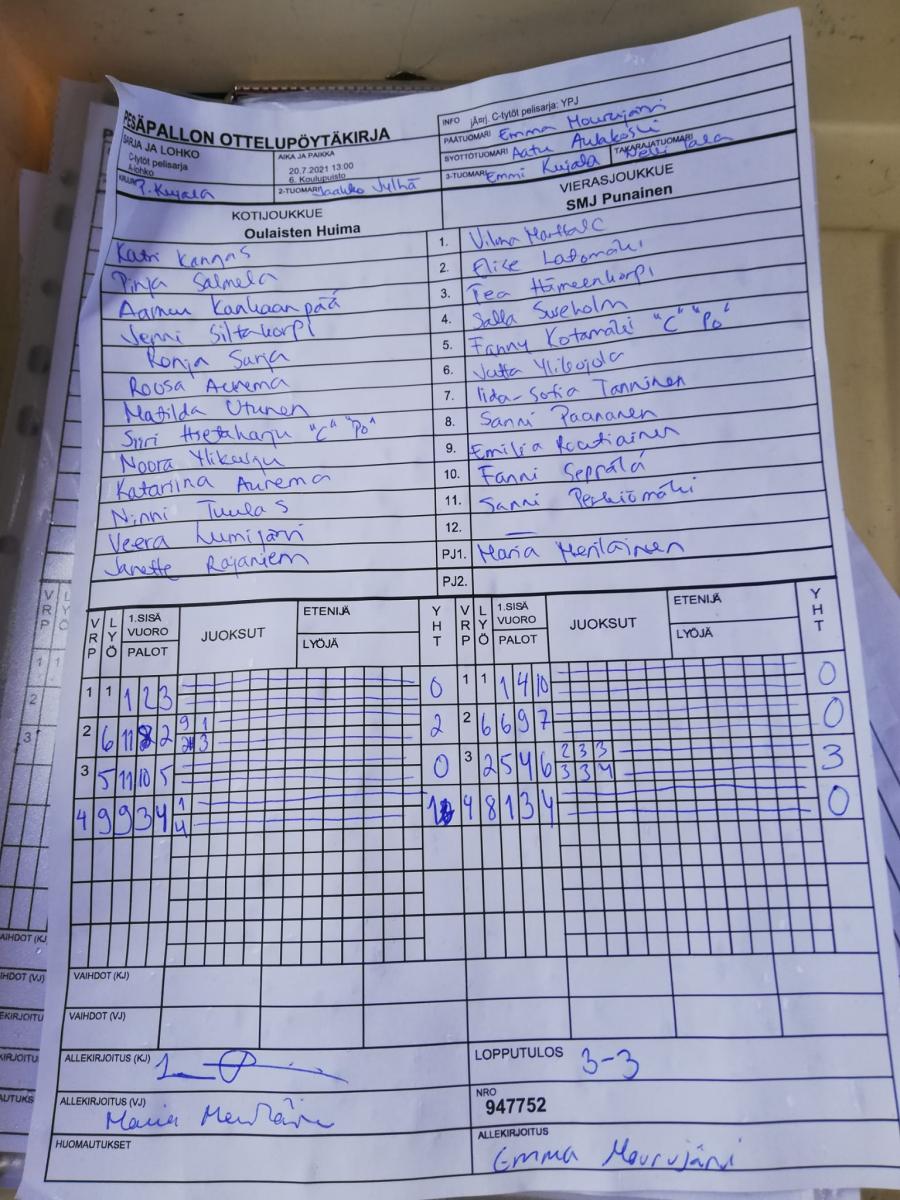 PESÄPALLON OTTELUPÖYTÄKIRJA
SARJA JA LOHKO
C-tytöt pelisarja
A-lohko
AIKA JA PAIKKA
20.7.2021 13:00
6. Koulupuisto
INFO jÄ¤rj. C-tytöt pelisarja: YPJ
PÄÄTUOMARI Emma Mourujärvi
SYÖTTÖTUOMARI Aatu
TAKARAJATUOMARI
3-TUOMARI Emmi Kujala
P. Kujala
2-TUOMARI Jaakko Jylhä
KOTIJOUKKUE
Oulaisten Huima
VIERASJOUKKUE
SMJ Punainen
Katri Kangas 1. Vilma
Pinja Salmela 2. Elise Latomäki
Aamu Kankaanpää 3. Tea Hämeenkorpi
Jenni Siltakorpi 4. Salla
Ronja Sarja 5. Fanny Kotamäki "C" "Po"
Roosa Aurema 6. Jutta Ylikojola
Matilda Utunen 7. Iida-Sofia Tanninen
Siiri "C" "Po" 8. Sanni Paananen
Noora 9. Emilia Rautiainen
Katariina Aurema 10. Fanni Seppälä
Ninni Tuulas 11. Sanni Perkiömäki
Veera Lumijärvi 12. —
Janette Rajaniemi PJ1. Maria Meriläinen
PJ2.
VRP LYÖ 1.SISÄ VUORO PALOT JUOKSUT ETENIJÄ LYÖJÄ YHT VRP LYÖ 1.SISÄ VUORO PALOT JUOKSUT ETENIJÄ LYÖJÄ YHT
1 1 1 2 3 0 1 1 1 4 10 0
2 6 11 8 2 9 1 2 2 6 6 9 7 0
3
3 5 11 10 5 0 3 2 5 4 6 2 3 3 3
3 3 4
4 9 9 3 4 1 1 4 8 1 3 4 0
4
VAIHDOT (KJ)
VAIHDOT (VJ)
ALLEKIRJOITUS (KJ)
LOPPUTULOS 3-3
ALLEKIRJOITUS (VJ) Maria Meriläinen
NRO
947752
HUOMAUTUKSET
ALLEKIRJOITUS
Emma Mourujärvi